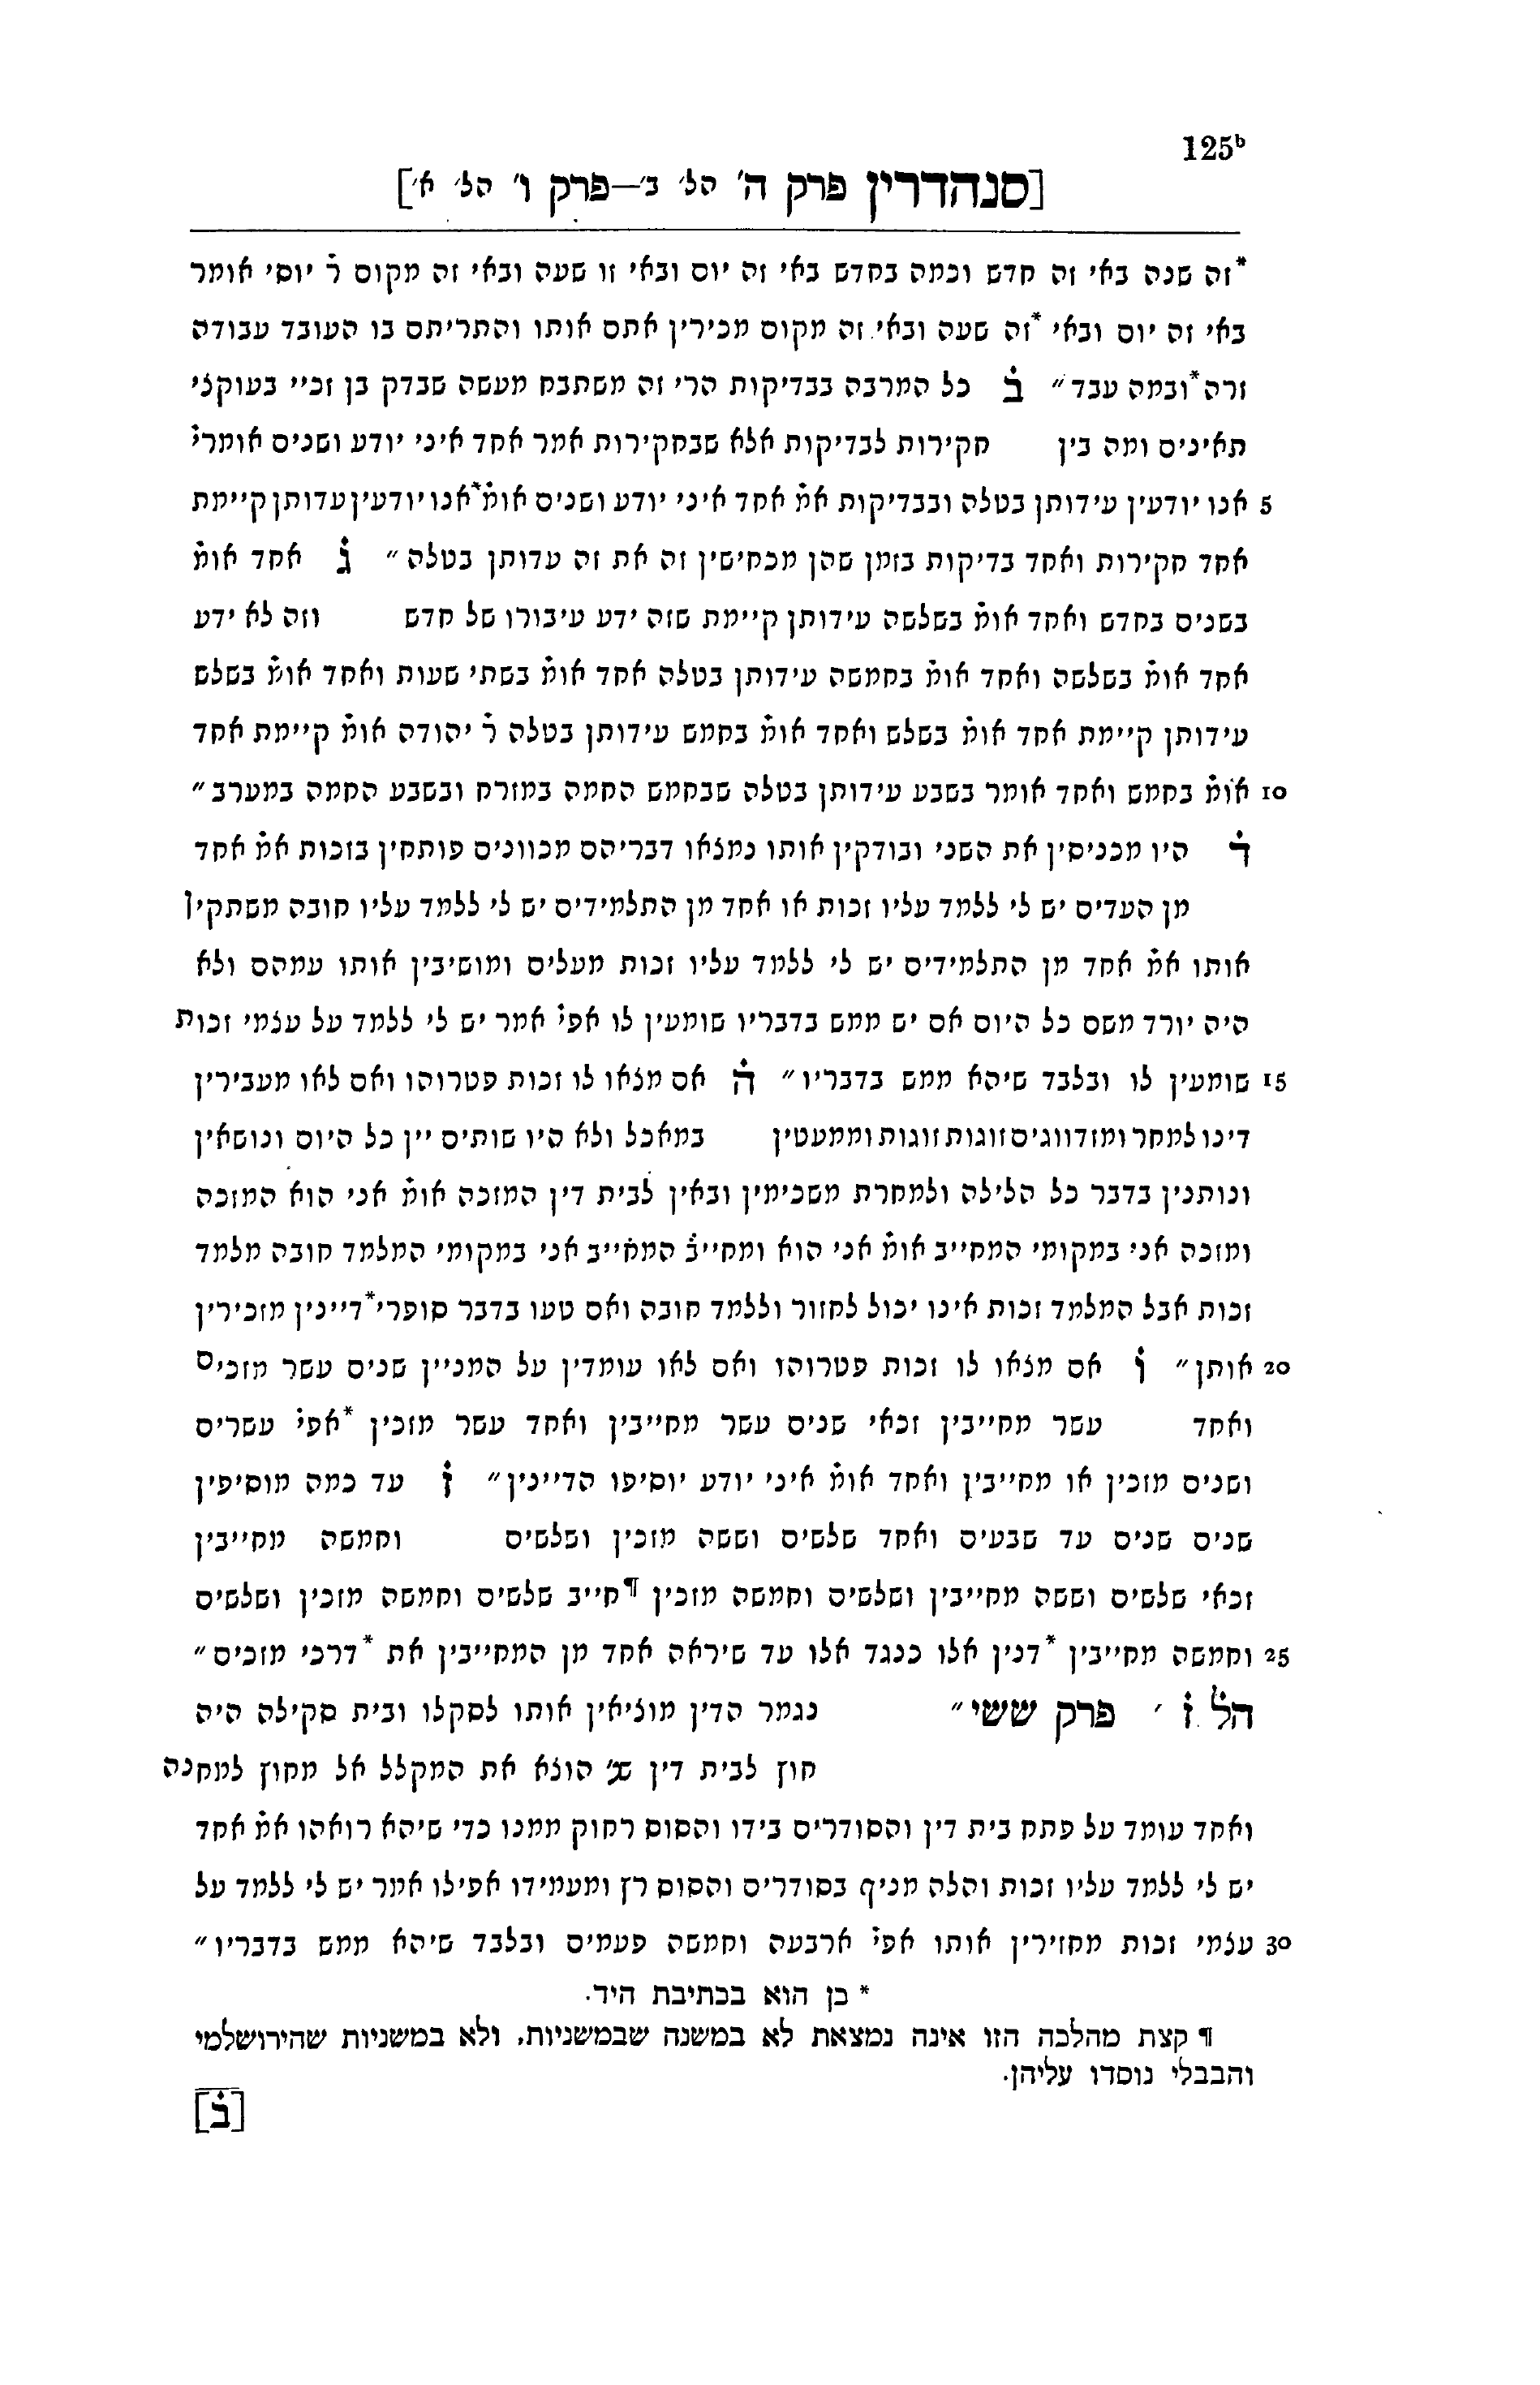 125ᵇ
[סנהדרין פרק ה' הל' ב'—פרק ו' הל' א']
*זה שנה באי זה חדש וכמה בחדש באי זה יום ובאי זו שעה ובאי זה מקום ר̇ יוסי אומר
באי זה יום ובאי *זה שעה ובאי זה מקום מכירין אתם אותו והתריתם בו העובד עבודה
זרה *ובמה עבד״ ב̇ כל המרבה בבדיקות הרי זה משתבח מעשה שבדק בן זכיי בעוקצי
תאינים ומה בין חקירות לבדיקות אלא שבחקירות אמר אחד איני יודע ושנים אומרי̇
5 אנו יודעין עידותן בטלה ובבדיקות אמ̇ אחד איני יודע ושנים אומ̇ *אנו יודעין עדותן קיימת
אחד חקירות ואחד בדיקות בזמן שהן מכחישין זה את זה עדותן בטלה״ ג̇ אחד אומ̇
בשנים בחדש ואחד אומ̇ בשלשה עידותן קיימת שזה ידע עיבורו של חדש וזה לא ידע
אחד אומ̇ בשלשה ואחד אומ̇ בחמשה עידותן בטלה אחד אומ̇ בשתי שעות ואחד אומ̇ בשלש
עידותן קיימת אחד אומ̇ בשלש ואחד אומ̇ בחמש עידותן בטלה ר̇ יהודה אומ̇ קיימת אחד
10 אומ̇ בחמש ואחד אומר בשבע עידותן בטלה שבחמש החמה במזרח ובשבע החמה במערב״
ד̇ היו מכניסין את השני ובודקין אותו נמצאו דבריהם מכוונים פותחין בזכות אמ̇ אחד
מן העדים יש לי ללמד עליו זכות או אחד מן התלמידים יש לי ללמד עליו חובה משתקין
אותו אמ̇ אחד מן התלמידים יש לי ללמד עליו זכות מעלים ומושיבין אותו עמהם ולא
היה יורד משם כל היום אם יש ממש בדבריו שומעין לו אפי̇ אמר יש לי ללמד על עצמי זכות
15 שומעין לו ובלבד שיהא ממש בדבריו״ ה̇ אם מצאו לו זכות פטרוהו ואם לאו מעבירין
דינו למחר ומזדווגים זוגות זוגות וממעטין במאכל ולא היו שותים יין כל היום ונושאין
ונותנין בדבר כל הלילה ולמחרת משכימין ובאין לבית דין המזכה אומ̇ אני הוא המזכה
ומזכה אני במקומי המחייב אומ̇ אני הוא ומחייב̇ המחייב אני במקומי המלמד חובה מלמד
זכות אבל המלמד זכות אינו יכול לחזור וללמד חובה ואם טעו בדבר סופרי *דיינין מזכירין
20 אותן״ ו̇ אם מצאו לו זכות פטרוהו ואם לאו עומדין על המניין שנים עשר מזכים
ואחד עשר מחייבין זכאי שנים עשר מחייבין ואחד עשר מזכין *אפי̇ עשרים
ושנים מזכין או מחייבין ואחד אומ̇ איני יודע יוסיפו הדיינין״ ז̇ עד כמה מוסיפין
שנים שנים עד שבעים ואחד שלשים וששה מזכין ושלשים וחמשה מחייבין
זכאי שלשים וששה מחייבין ושלשים וחמשה מזכין ¶חייב שלשים וחמשה מזכין ושלשים
25 וחמשה מחייבין *דנין אלו כנגד אלו עד שיראה אחד מן המחייבין את *דרכי מזכים״
הל̇ ז̇ ׳ פרק ששי״ נגמר הדין מוציאין אותו לסקלו ובית סקילה היה
חוץ לבית דין שנ׳ הוצא את המקלל אל מחוץ למחנה
ואחד עומד על פתח בית דין והסודרים בידו והסוס רחוק ממנו כדי שיהא רואהו אמ̇ אחד
יש לי ללמד עליו זכות והלה מניף בסודרים והסוס רץ ומעמידו אפילו אמר יש לי ללמד על
30 עצמי זכות מחזירין אותו אפי̇ ארבעה וחמשה פעמים ובלבד שיהא ממש בדבריו״
* כן הוא בכתיבת היד.
¶ קצת מהלכה הזו אינה נמצאת לא במשנה שבמשניות, ולא במשניות שהירושלמי
והבבלי נוסדו עליהן.
[ב̇]